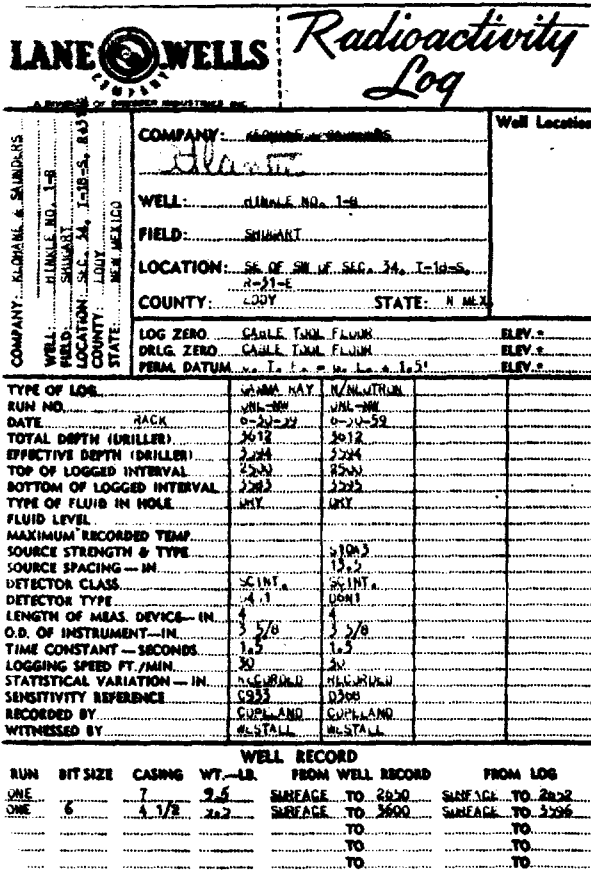 LANE WELLS
COMPANY
A DIVISION OF DRESSER INDUSTRIES INC.
Radioactivity
Log
COMPANY: KLOHANE & SAUNDERS
WELL: HINKLE NO. 1-B
FIELD: SHUGART
LOCATION: SEC. 34, T-18-S,
COUNTY: EDDY
STATE: NEW MEXICO
COMPANY: KLOHANE & SAUNDERS
Atlantic
WELL: HINKLE NO. 1-B
FIELD: SHUGART
LOCATION: SE OF SW OF SEC. 34, T-18-S,
R-31-E
COUNTY: EDDY STATE: N MEX
Well Location
LOG ZERO CABLE TOOL FLOOR ELEV.=
DRLG. ZERO CABLE TOOL FLOOR ELEV.=
PERM. DATUM ELEV.=
TYPE OF LOG GAMMA RAY N/NEUTRON
RUN NO. ONE-NW ONE-NW
DATE RACK 6-30-59 6-30-59
TOTAL DEPTH (DRILLER) 3612 3612
EFFECTIVE DEPTH (DRILLER) 3594 3594
TOP OF LOGGED INTERVAL 2500 2500
BOTTOM OF LOGGED INTERVAL 3583 3593
TYPE OF FLUID IN HOLE DRY DRY
FLUID LEVEL
MAXIMUM RECORDED TEMP.
SOURCE STRENGTH & TYPE
SOURCE SPACING — IN. 13.5
DETECTOR CLASS SCINT. SCINT.
DETECTOR TYPE
LENGTH OF MEAS. DEVICE — IN. 4 4
O.D. OF INSTRUMENT — IN. 3 5/8 3 5/8
TIME CONSTANT — SECONDS 1.5 1.5
LOGGING SPEED FT./MIN. 30 30
STATISTICAL VARIATION — IN. RECORDED RECORDED
SENSITIVITY REFERENCE C933 D368
RECORDED BY COPELAND COPELAND
WITNESSED BY WESTALL WESTALL
WELL RECORD
RUN BIT SIZE CASING WT.—LB. FROM WELL RECORD FROM LOG
ONE 7 SURFACE TO 2650 SURFACE TO 2652
ONE 6 4 1/2 9.5 SURFACE TO 3600 SURFACE TO 3596
TO TO
TO TO
TO TO